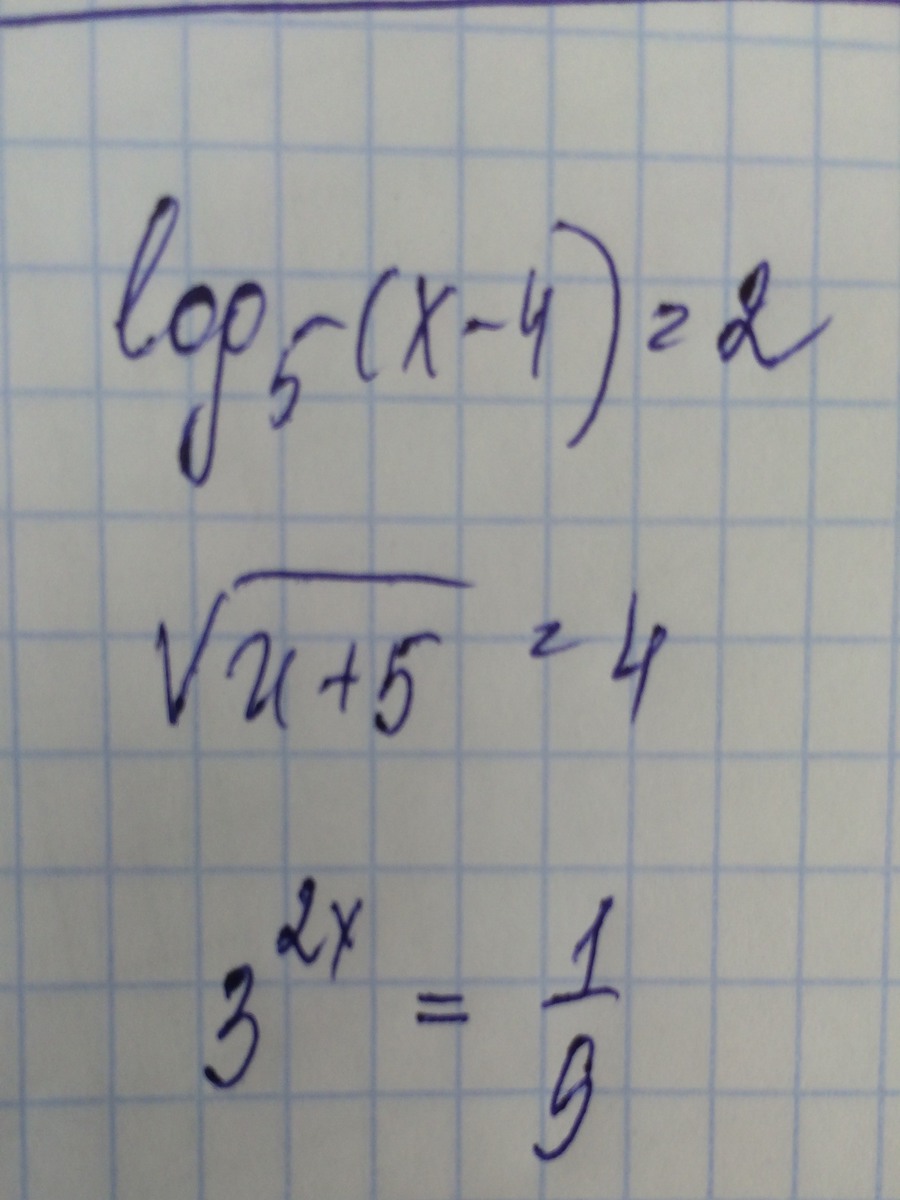 log₅(x-4)=2
√(x+5) = 4
3^(2x) = 1/9